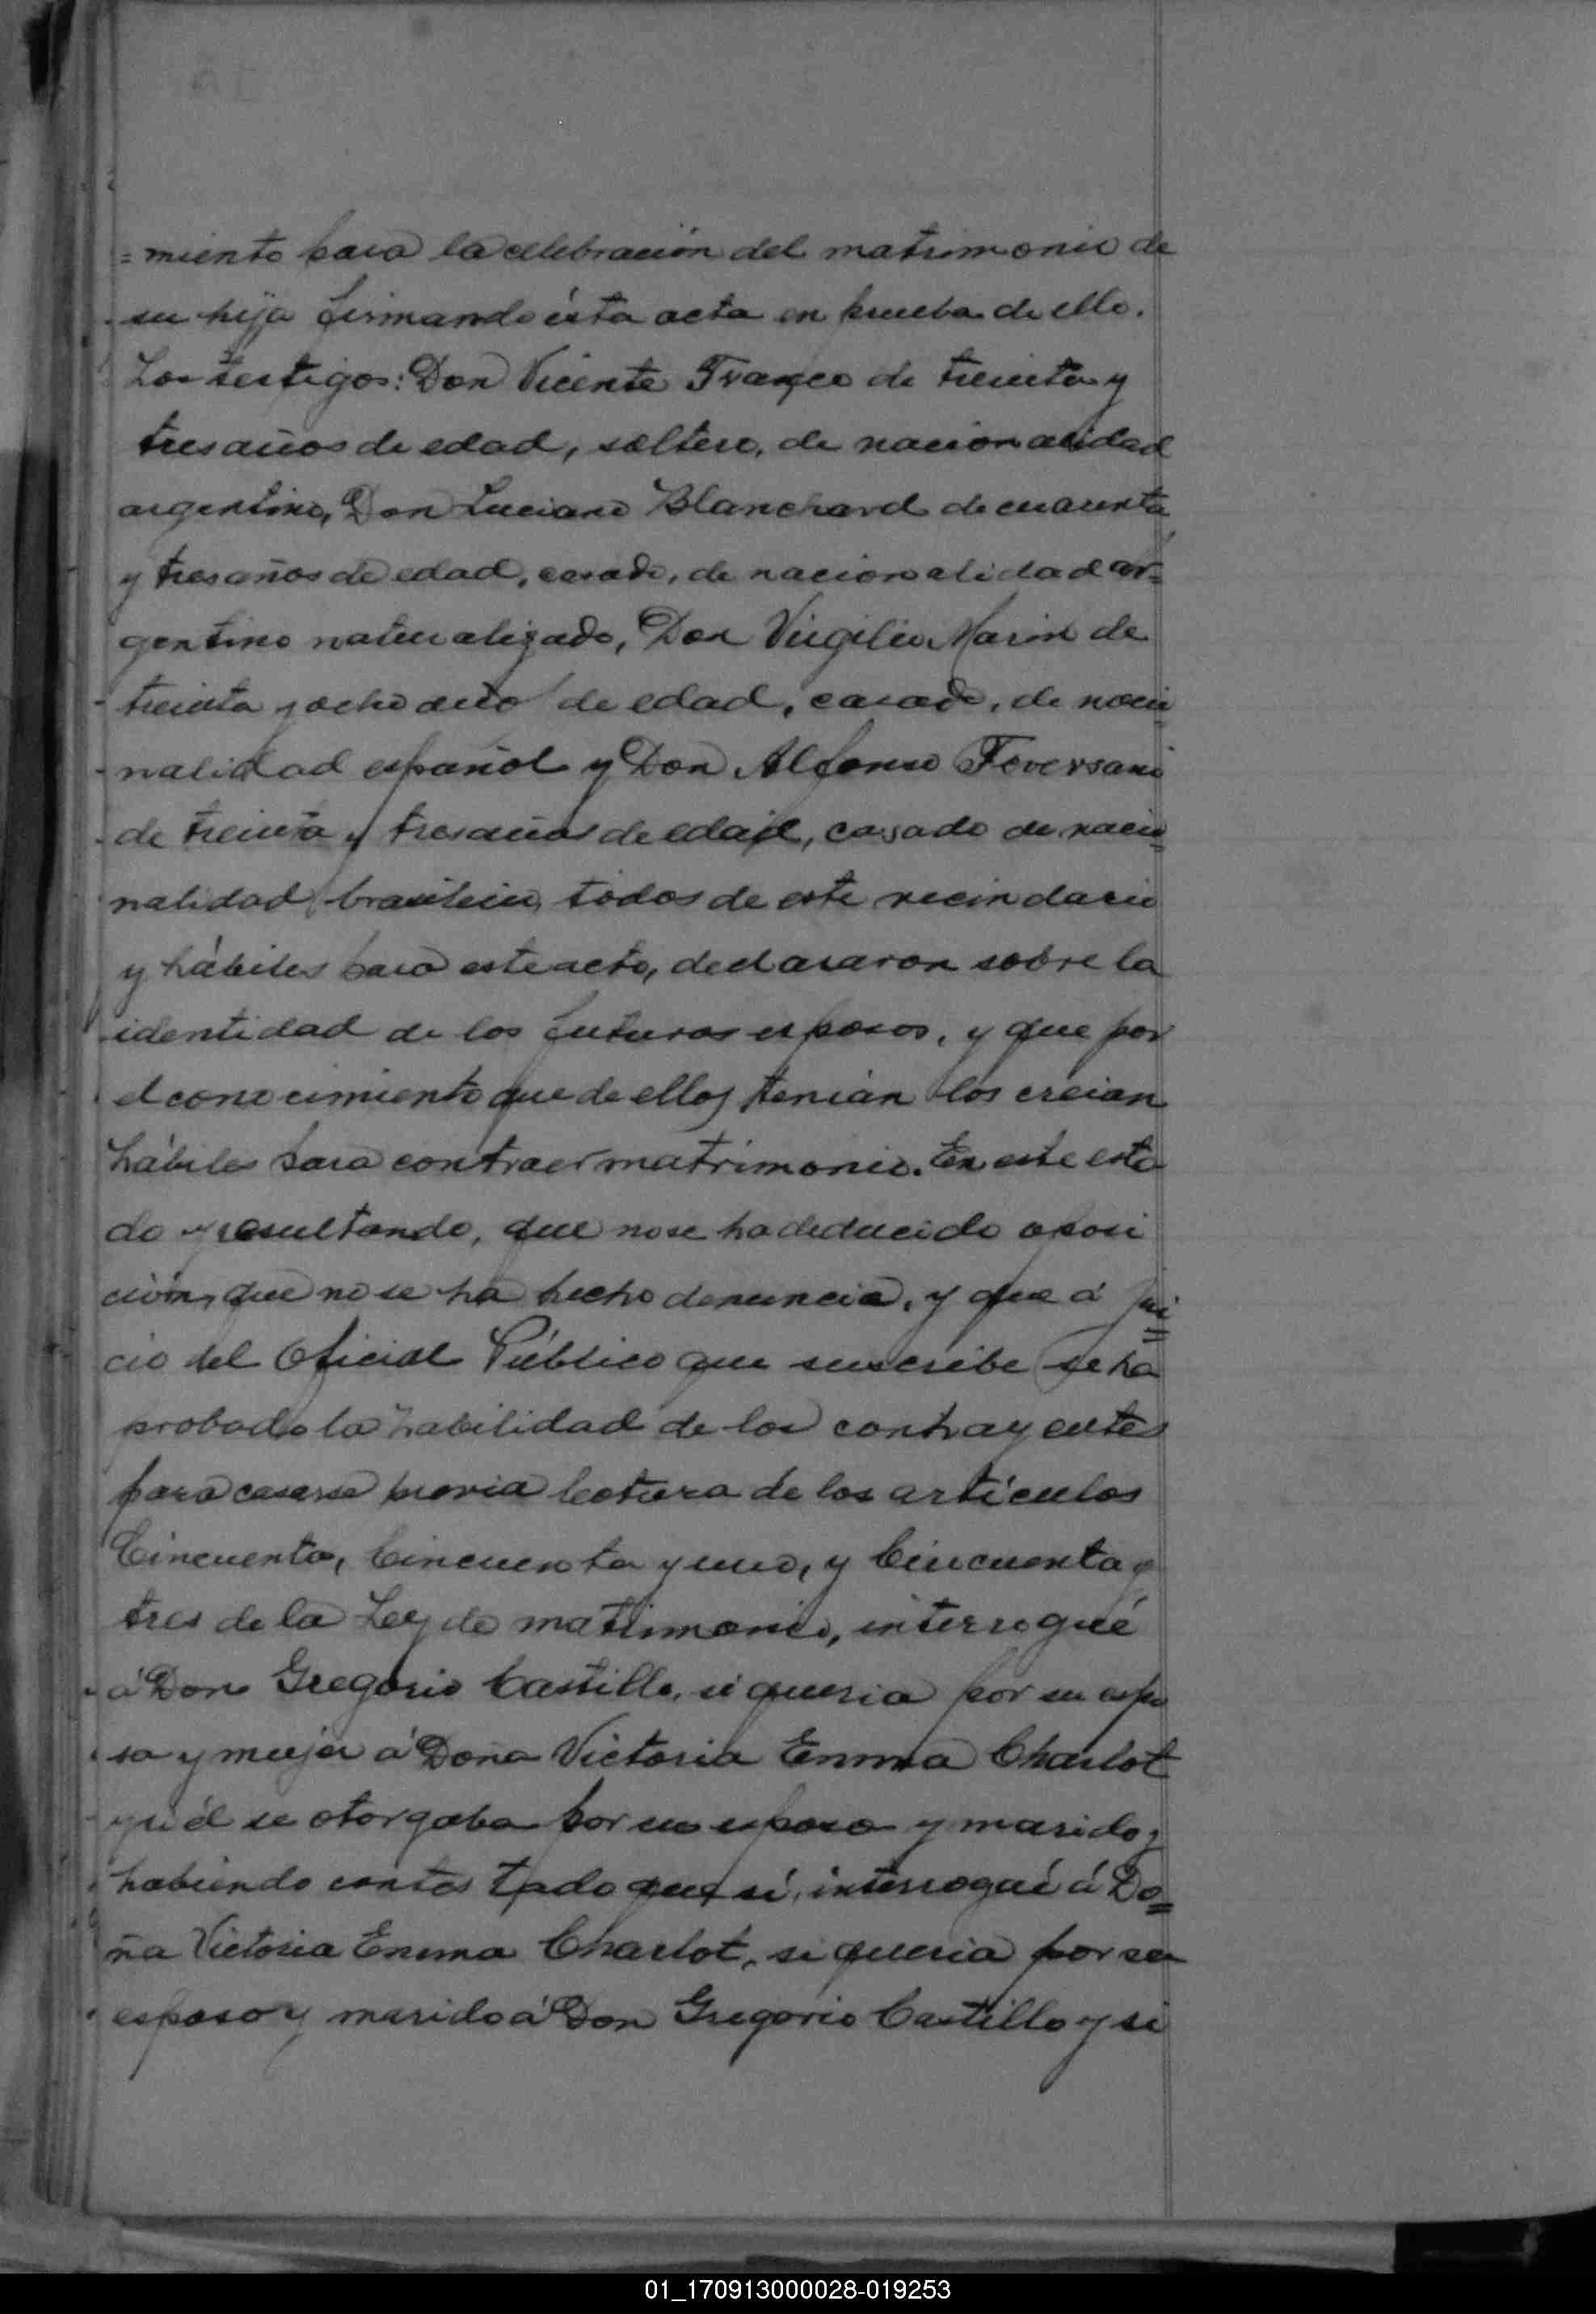 =miento para la celebración del matrimonio de
su hija firmando ésta acta en prueba de ello.
Los testigos: Don Vicente Franco de treinta y
tres años de edad, soltero, de nacionalidad
argentino, Don Luciano Blanchard de cuarenta
y tres años de edad, casado, de nacionalidad ar=
gentino naturalizado, Don Virgilio Marin de
treinta y ocho año de edad, casado, de nacio
nalidad español y Don Alfonso Feversani
de treinta y tres años de edad, casado de nacio=
nalidad brasilero, todos de este vecindario
y hábiles para este acto, declararon sobre la
identidad de los futuros esposos, y que por
el conocimiento que de ellos tenián los creian
hábiles para contraer matrimonio. En este esta
do y resultando, que no se ha deducido oposi
ción, que no se ha hecho denuncia, y que á jui=
cio del Oficial Público que suscribe se ha
probado la habilidad de los contrayentes
para casarse previa lectura de los artículos
Cincuenta, Cincuenta y uno, y Cincuenta y
tres de la Ley de matrimonio, interrogué
á Don Gregorio Castillo, si queria por su espo
sa y mujer á Doña Victoria Emma Charlot
y si él se otorgaba por su esposo y marido y
habiendo contestado que sí, interrogué á Do=
ña Victoria Emma Charlot, si queria por su
esposo y marido á Don Gregorio Castillo y si
01_170913000028-019253